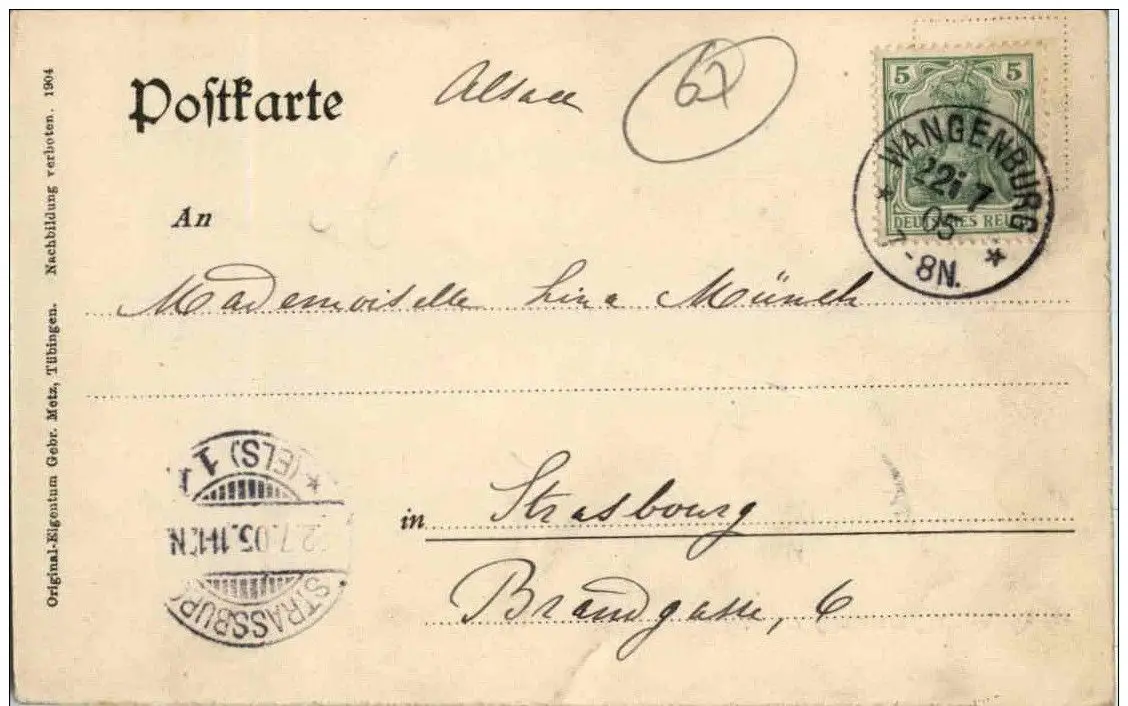 Postkarte
Alsace
67
5 5
DEUTSCHES REICH
* WANGENBURG *
22 7
05
7-8N.
An
Mademoiselle Lina Münch
in Strasbourg
Brandgasse, 6
STRASSBURG
2.7.05.11-12N
* (ELS) 1
Original-Eigentum Gebr. Metz, Tübingen. Nachbildung verboten. 1904